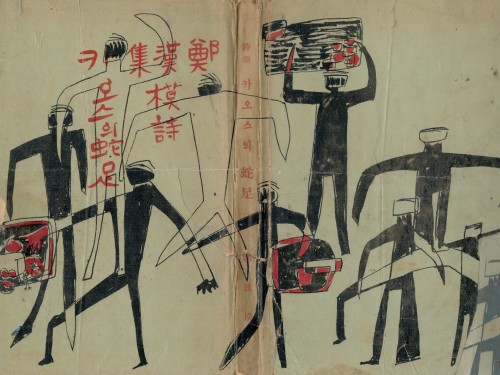 鄭漢模詩集
카오스의蛇足
詩集 카오스의 蛇足